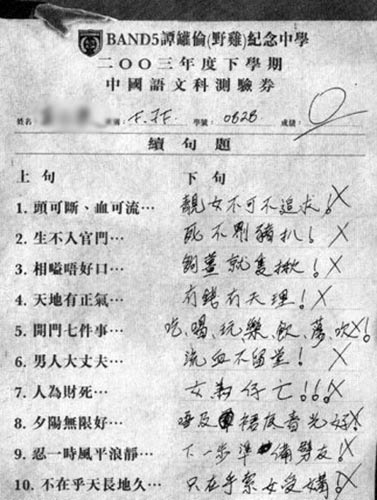 BAND5譚鑵倫(野雞)紀念中學
二○○三年度下學期
中國語文科測驗券
姓名: 班別: 學號: 0828 成績: 0
續句題
上句 下句
1. 頭可斷、血可流… 靚女不可不追求!
2. 生不入官門… 死不劏豬扒!
3. 相嗌唔好口… 夠薑就隻揪!
4. 天地有正氣… 有錢有天理!
5. 開門七件事… 吃、喝、玩、樂、飲、蕩、吹!
6. 男人大丈夫… 流血不留堂!
7. 人為財死… 女為仔亡!!!
8. 夕陽無限好… 唔及裙底春光好!
9. 忍一時風平浪靜… 下一步準備劈友!
10. 不在乎天長地久… 只在乎索女受媾!